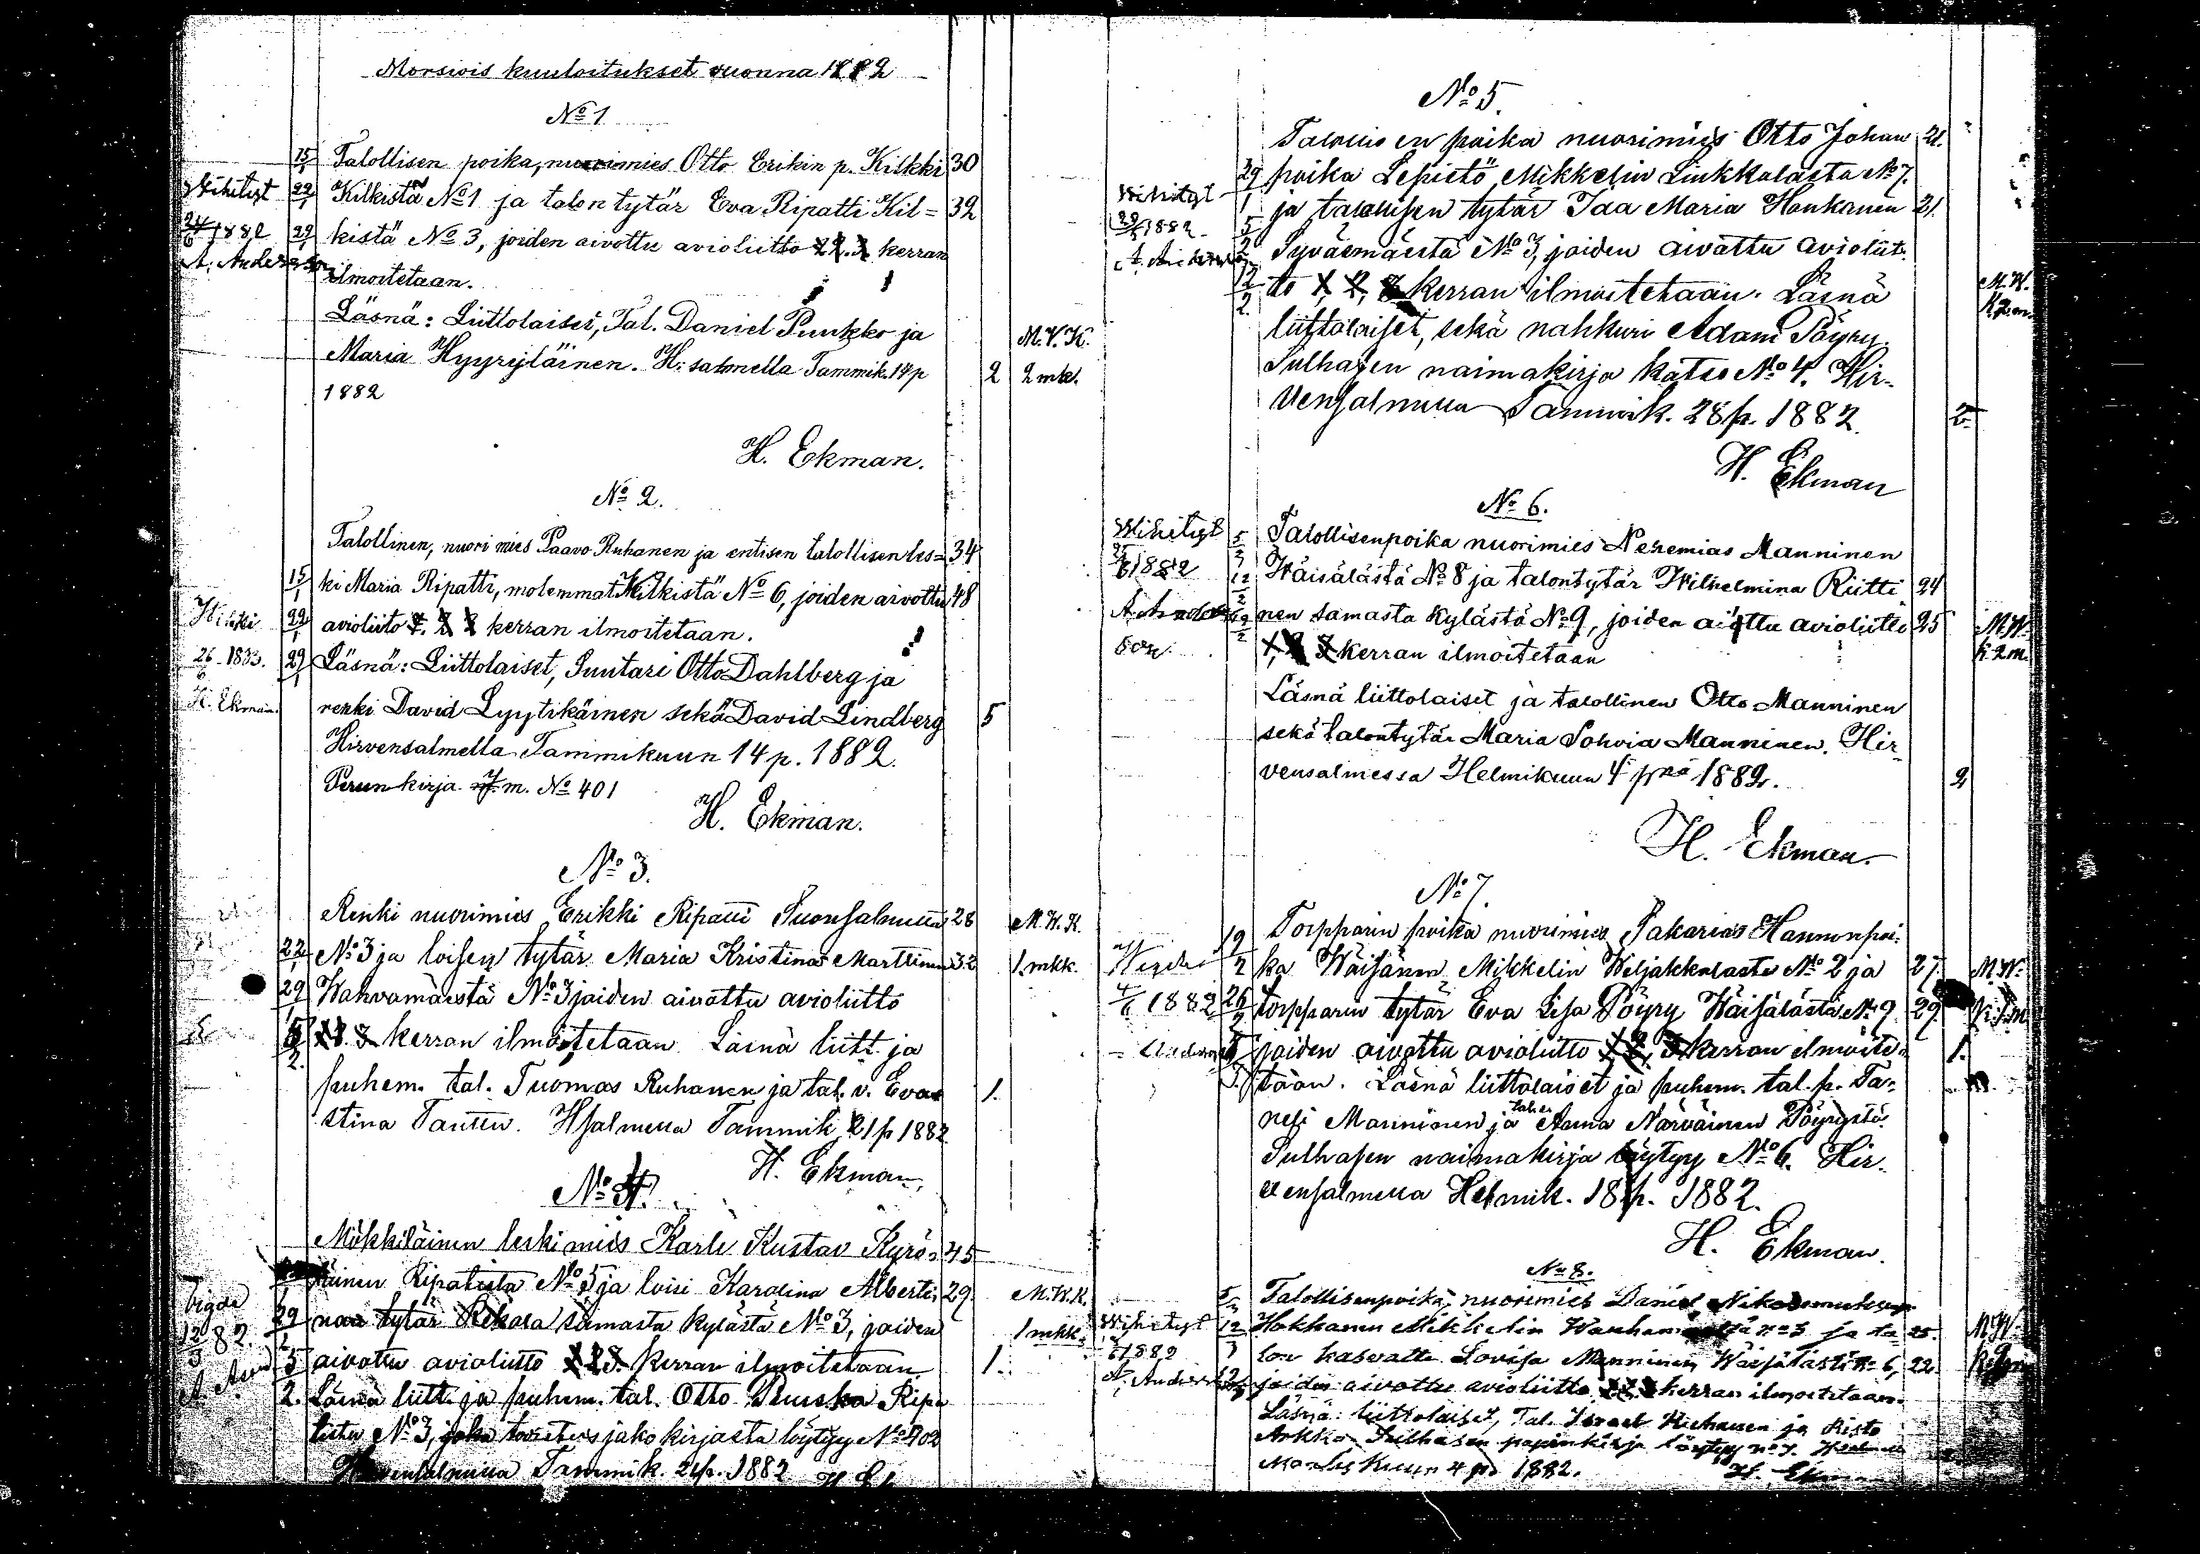 Morsiois kuuloitukset vuonna 1882
No 1
15/1 Talollisen poika, nuorimies Otto Erikin p. Kilkki 30
Wihityt 22/1 Kilkistä No 1 ja talon tytär Eva Ripatti Kil= 32
24/6 1882 29/1 kistä No 3, joiden aivottu avioliitto 1. 2. 3. kerran
A. Anderson ilmoitetaan.
Läsnä: Liittolaiset, Tal. Daniel Puukko ja M.V.K.
Maria Hyyryläinen. H:salmella Tammik. 14 p 2 2 mk.
1882
H. Ekman.
No 2.
Talollinen, nuori mies Paavo Ruhanen ja entisen talollisen les= 34
15/1 ki Maria Ripatti, molemmat Kilkistä No 6, joiden aivottu 48
22/1 avioliito 1. 2 3 kerran ilmoitetaan.
26/6 1883. 29/1 Läsnä: Liittolaiset, Suutari Otto Dahlberg ja
H. Ekman. renki David Lyytikäinen sekä David Lindberg 5
Hirvensalmella Tammikuun 14 p. 1882.
Perunkirja m. No 401
H. Ekman.
No 3.
Renki nuorimies Erikki Ripatti Suonsalmella 28 M.W.K.
22/1 No 3 ja loisen tytär Maria Kristina Marttinen 32 1 mkk.
29/1 Wahvamäestä No 3 joiden aivottu avioliitto
5/2 1 2. 3 kerran ilmoitetaan. Läsnä liitt. ja
puhem. tal. Tuomas Ruhanen ja tal. v. Eva 1.
stina Tanttu. Hsalmella Tammik 21 p 1882
H. Ekman.
No 4.
Mökkiläinen leskimies Karle Kustav Kyrö= 45
läinen Ripatista No 5 ja loisi Karolina Alberti= 29. M.W.K.
Vigda 29/1 nan tytär Rekola samasta kylästä No 3, joiden 1 mkk.
12/3 82. 5 aivottu avioliitto 1 2 3. kerran ilmoitetaan 1.
2. Läsnä liitt. ja puhem. tal. Otto Ruuska Ripa
tista No 3, joka jako kirjasta löytyy No 402
Hirvensalmella Tammik. 21 p. 1882
No 5.
Talollisen poika nuorimies Otto Johan 21.
29 poika Lepistö Mikkelin Liukkolasta No 7.
Wihityt 1 ja talollisen tytär Ida Maria Honkanen 21.
1882 5 Syväsmäestä No 3, joiden aivottu avioliit.
A. Anderson 2
12 to 1, 2, 3 kerran ilmoitetaan. Läsnä M.W.
2. liittolaiset, sekä nahkuri Adam Pöyry. K. 2 m.
Sulhasen naimakirja katso No 4. Hir-
vensalmella Tammik. 28 p. 1882. 2
H. Ekman
No 6.
Wihityt 5/2 Talollisenpoika nuorimies Nehemias Manninen
1882 12/2 Wäisälästä No 8 ja talontytär Wilhelmina Riitti 24
A. Ander 19/2 nen samasta kylästä No 9, joiden aivottu avioliitto 25 M.W.
son. 1, 2 3 kerran ilmoitetaan K. 2 m.
Läsnä liittolaiset ja talollinen Otto Manninen
sekä talontytär Maria Sohvia Manninen. Hir
vensalmessa Helmikuun 4 pnä 1882. 2
H. Ekman.
No 7.
19 Torpparin poika nuorimies Sakarias Hannonpoi-
2 ka Wäisänen Mikkelin Weljakkalasta No 2 ja 27. M.W.
4/6 1882 26/2 torpparin tytär Eva Lisa Pöyry Wäisälästä No 9 29. K. 1. m
5 joiden aivottu avioliitto 1, 2, 3 kerran ilmoite= 1.
3. taan. Läsnä liittolaiset ja puhem. tal. p. Ta=
neli Manninen ja Anna Närväinen Pöyrystä.
Sulhasen naimakirja löytyy No 6. Hir-
vensalmella Helmik. 18 p. 1882.
H. Ekman.
No 8.
5/3 Talollisenpoika, nuorimies Daniel Nikodemuksen
Wihityt 12 Hokkanen Mikkelin No 3 ja ta 25. M.W.
1882 lon kasvatti Lovisa Manninen Wäisälästä No 6, 22 K. 2 m
A. Anderson 19 joiden aivottu avioliitto 1 2 3 kerran ilmoitetaan.
Läsnä: liittolaiset, Tal. Israel Hiehanen ja Risto
Arkko Sulhasen papinkirja löytyy no 7.
Maaliskuun 4 p. 1882. H. Ekman